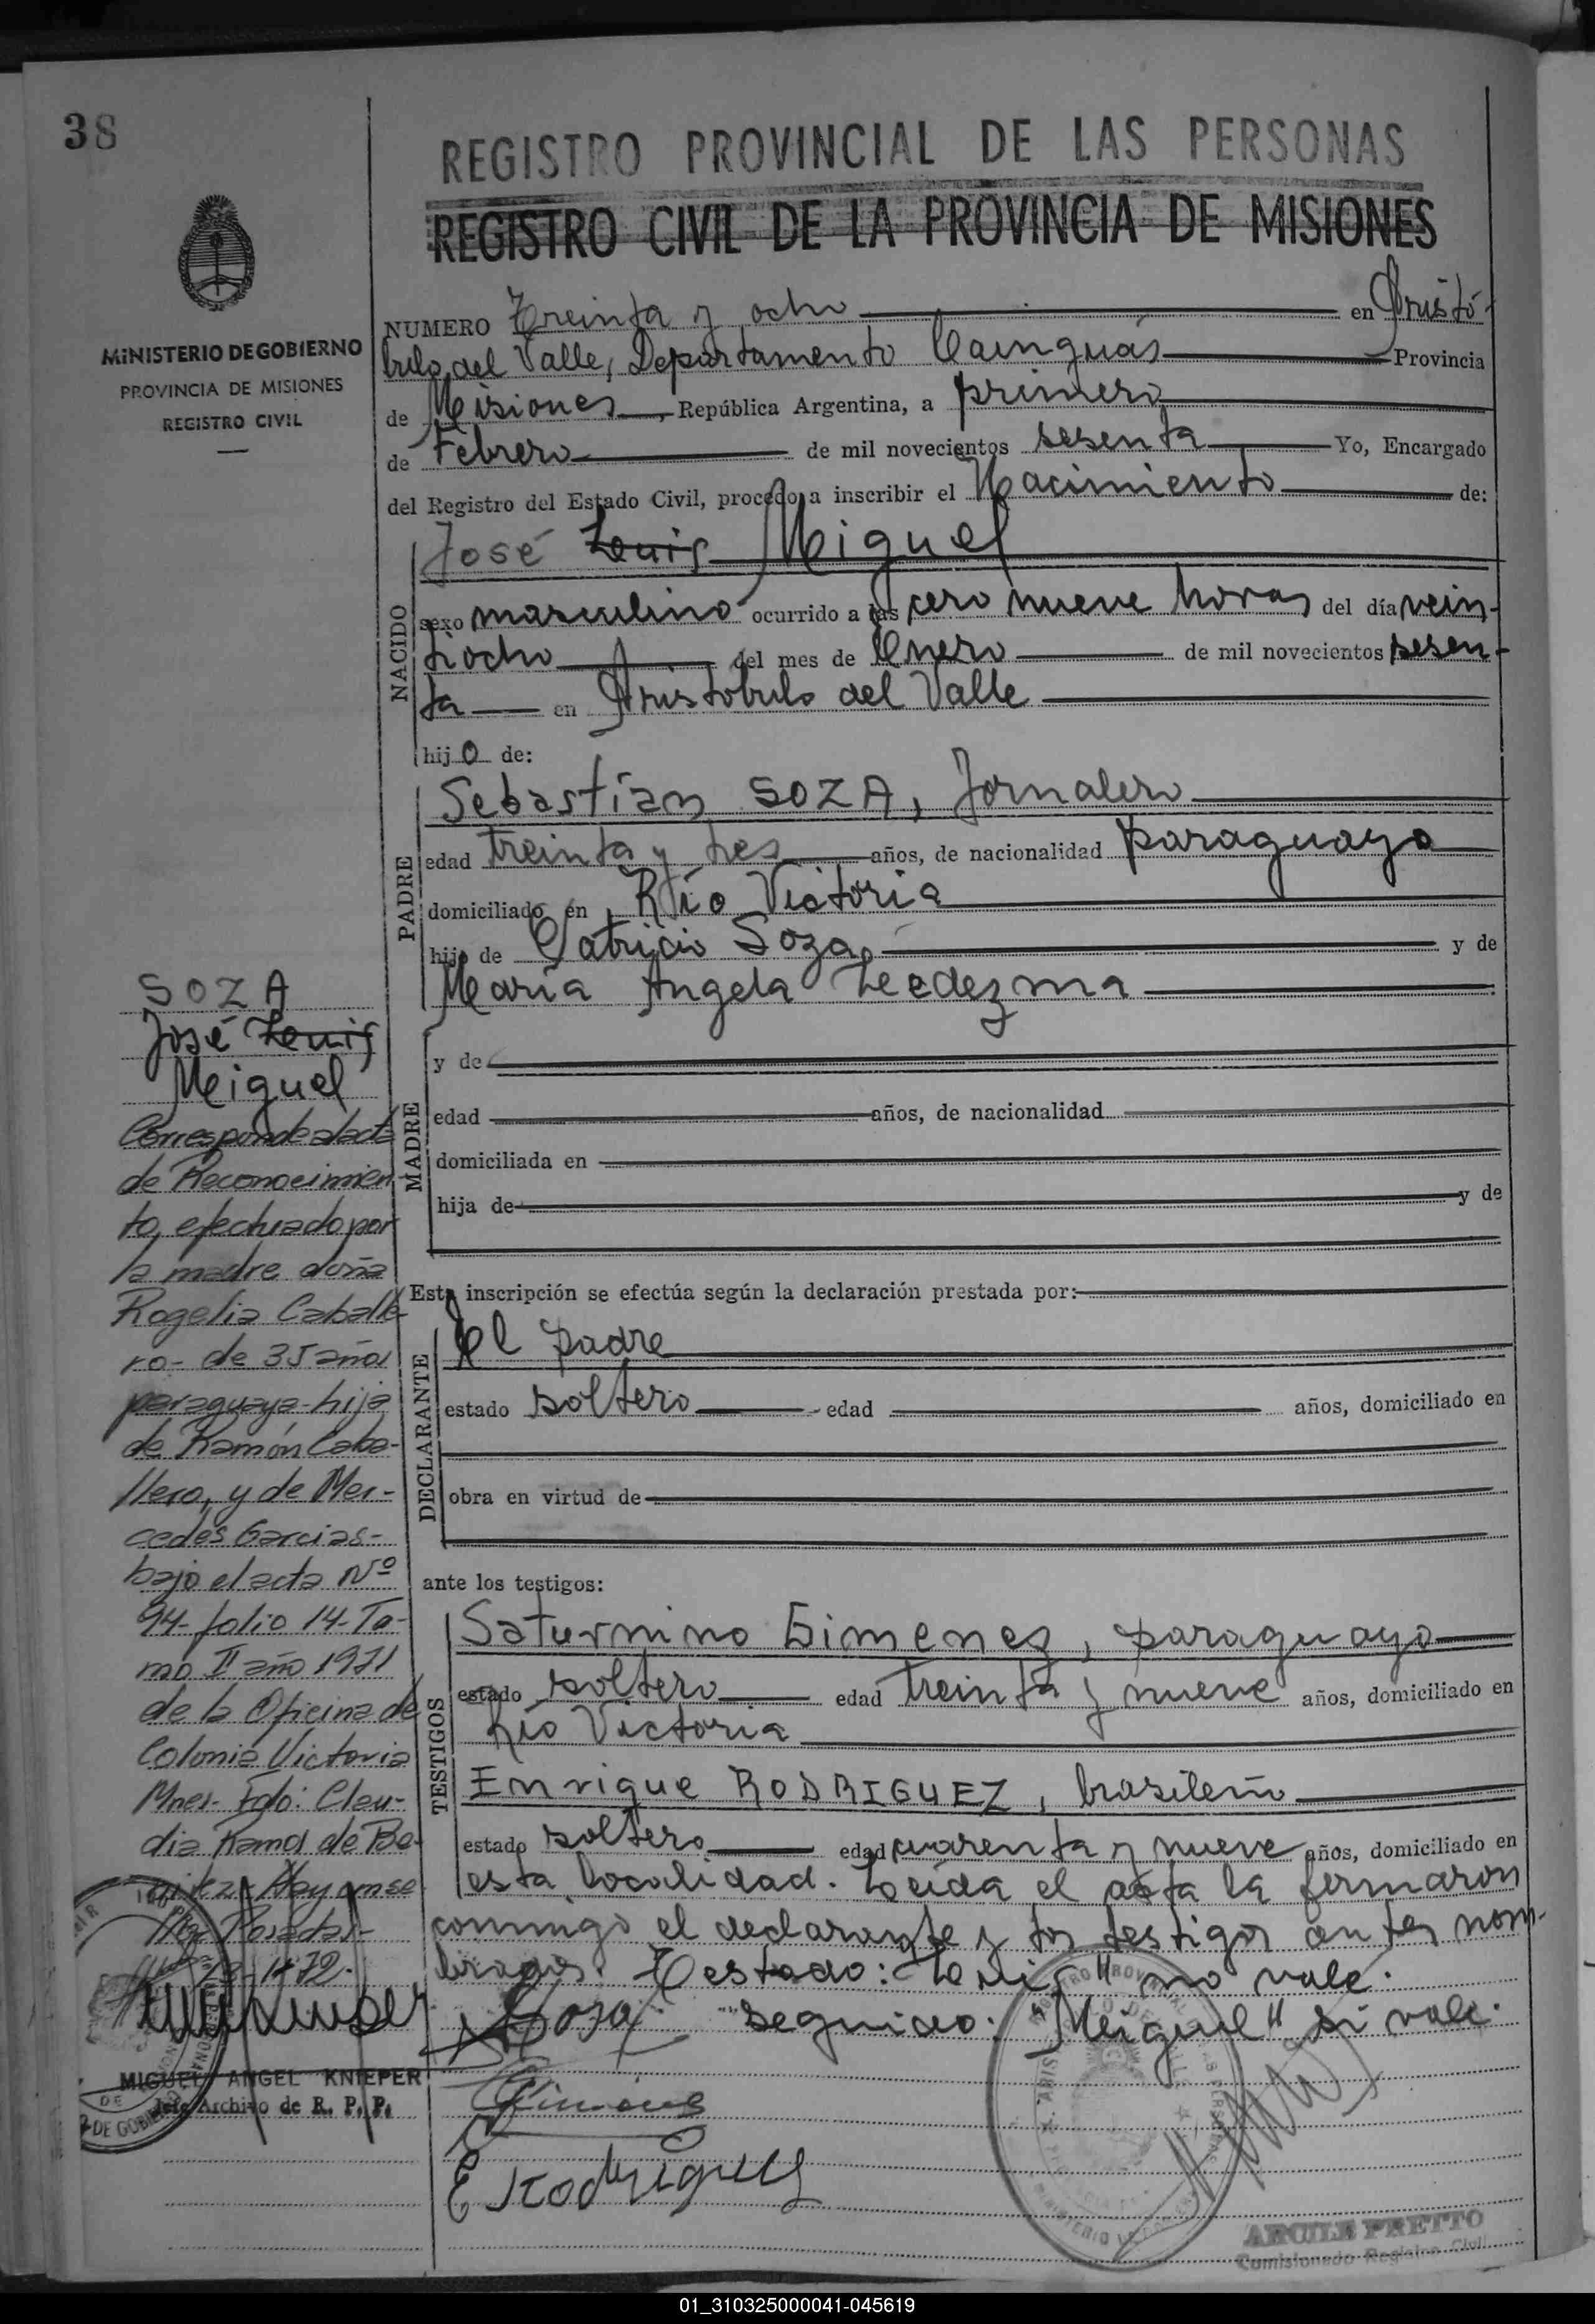 38
REGISTRO PROVINCIAL DE LAS PERSONAS
REGISTRO CIVIL DE LA PROVINCIA DE MISIONES
MINISTERIO DE GOBIERNO
PROVINCIA DE MISIONES
REGISTRO CIVIL
NUMERO Treinta y ocho en Aristó-
bulo del Valle, Departamento Cainguás Provincia
de Misiones, República Argentina, a primero
de Febrero de mil novecientos sesenta Yo, Encargado
del Registro del Estado Civil, procedo a inscribir el Nacimiento de:
NACIDO
José Louis Miguel
sexo masculino ocurrido a las cero nueve horas del día vein-
tiocho del mes de Enero de mil novecientos sesen-
ta en Aristobulo del Valle
hijo de:
PADRE
Sebastian SOZA, Jornalero
edad treinta y tres años, de nacionalidad paraguaya
domiciliado en Río Victoria
hijo de Patricio Soza y de
María Angela Leedezma
MADRE
y de
edad años, de nacionalidad
domiciliada en
hija de y de
Esta inscripción se efectúa según la declaración prestada por:
DECLARANTE
El padre
estado soltero edad años, domiciliado en
obra en virtud de
ante los testigos:
TESTIGOS
Saturnino Gimenez, paraguayo
estado soltero edad treinta y nueve años, domiciliado en
Río Victoria
Enrique RODRIGUEZ, brasileño
estado soltero edad cuarenta y nueve años, domiciliado en
esta localidad. Leída el acta la firmaron
conmigo el declarante y los testigos antes nom-
brados. Testado: "Louis" no vale.
Soza seguido: "Miguel" si vale.
Gimenez
E Rodriguez
ARCULE PRETTO
Comisionado Registro Civil
SOZA
José Louis
Miguel
Corresponde al acta
de Reconocimien-
to, efectuado por
la madre doña
Rogelia Caballe-
ro- de 35 años
paraguaya- hija
de Ramón Caba-
llero, y de Mer-
cedes Garcias-
bajo el acta Nº
94- folio 14- To-
mo II año 1971
de la Oficina de
Colonia Victoria
Mnes- Fdo: Clau-
dia Ramos de Be-
nitez- Hay un se-
llo. Posadas-
1972.
MIGUEL ANGEL KNIEPER
Jefe Archivo de R. P. P.
01_310325000041-045619